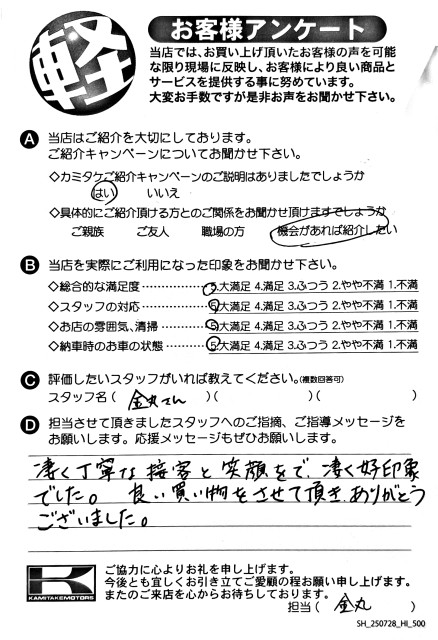 軽
お客様アンケート
当店では、お買い上げ頂いたお客様の声を可能
な限り現場に反映し、お客様により良い商品と
サービスを提供する事に努めています。
大変お手数ですが是非お声をお聞かせ下さい。
A 当店はご紹介を大切にしております。
ご紹介キャンペーンについてお聞かせ下さい。
◇カミタケご紹介キャンペーンのご説明はありましたでしょうか
はい いいえ
◇具体的にご紹介頂ける方とのご関係をお聞かせ頂けますでしょうか
ご親族 ご友人 職場の方 機会があれば紹介したい
B 当店を実際にご利用になった印象をお聞かせ下さい。
◇総合的な満足度……………5.大満足 4.満足 3.ふつう 2.やや不満 1.不満
◇スタッフの対応……………5.大満足 4.満足 3.ふつう 2.やや不満 1.不満
◇お店の雰囲気、清掃………5.大満足 4.満足 3.ふつう 2.やや不満 1.不満
◇納車時のお車の状態………5.大満足 4.満足 3.ふつう 2.やや不満 1.不満
C 評価したいスタッフがいれば教えてください。(複数回答可)
スタッフ名( 金丸さん )( )( )
D 担当させて頂きましたスタッフへのご指摘、ご指導メッセージを
お願いします。応援メッセージもぜひお願いします。
凄く丁寧な接客と笑顔をで、凄く好印象
でした。 良い買い物をさせて頂き、ありがとう
ございました。
KAMITAKEMOTORS
ご協力に心よりお礼を申し上げます。
今後とも宜しくお引き立てご愛顧の程お願い申し上げます。
またのご来店を心からお待ちしております。
担当( 金丸 )
SH_250728_HI_500